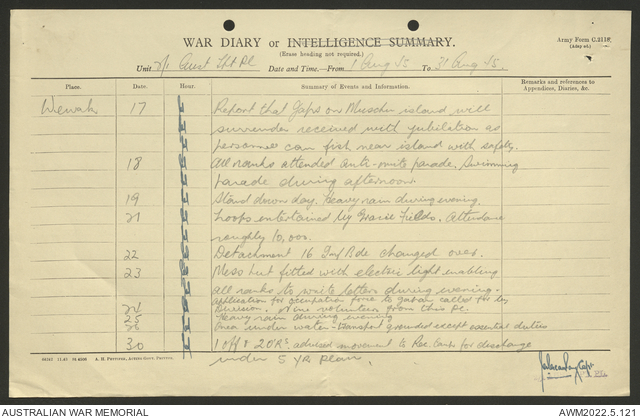 WAR DIARY or INTELLIGENCE SUMMARY.
(Erase heading not required.)
Army Form C.2118
(Adap ed.)
Unit Aust Lht Pl Date and Time—From 1 Aug 45 To 31 Aug 45.
Place. Date. Hour. Summary of Events and Information. Remarks and references to Appendices, Diaries, &c.
Wewak 17 Report that Japs on Muschu island will
surrender received with jubilation as
personnel can fish near island with safety.
18 All ranks attended Anti-mite parade. Swimming
parade during afternoon.
19 Stand down day. Heavy rain during evening.
21 Troops entertained by Gracie Fields. Attendance
roughly 10,000.
22 Detachment 16 Inf Bde changed over.
23 Mess hut fitted with electric light enabling
all ranks to write letters during evening.
24 Application for occupation force to called for by
Division. volunteers from this Pl.
25 Heavy rain during evening
26 Area under water - transport grounded except essential duties
30 1 Off & 2 ORs advised movement to Rec. Camp for discharge
under 5 yr plan.
A. H. Pettifer, Acting Govt. Printer.
AUSTRALIAN WAR MEMORIAL
AWM2022.5.121